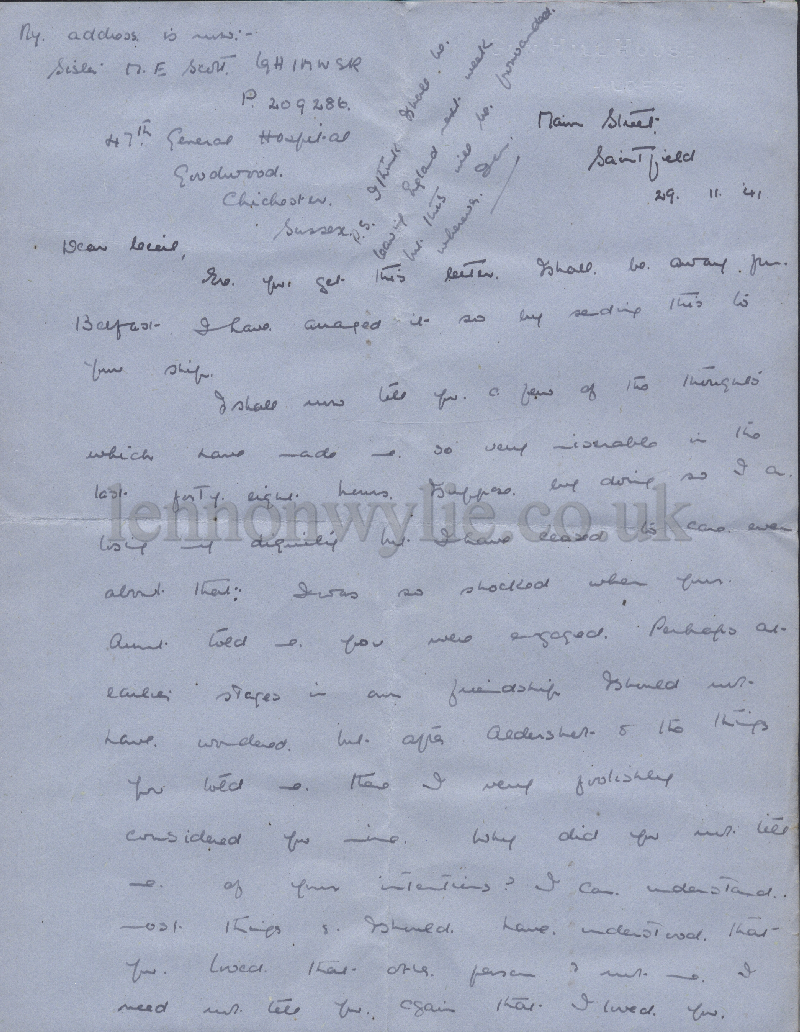 My address is now:-
Sister M. E. Scott. QAIMNSR
P. 209286.
47th General Hospital
Goodwood.
Chichester.
Sussex.
P.S. I think I shall be
leaving England next week
but this will be forwarded.
wherever.
Main Street.
Saintfield
29. 11. '41
Dear Cecil,
Ere you get this letter. I shall be away from
Belfast I have arranged it so by sending this to
your ship.
I shall now tell you a few of the thoughts
which have made me so very miserable in the
last forty eight hours. I suppose by doing so I am
losing my dignity but I have ceased to care even
about that. I was so shocked when your
Aunt told me you were engaged. Perhaps at
earlier stages in our friendship I should not
have wondered but after Aldershot & the things
you told me there I very foolishly
considered you mine. Why did you not tell
me of your intentions? I can understand
most things & I should have understood that
you loved that other person & not me. I
need not tell you again that I loved you.
lennonwylie.co.uk